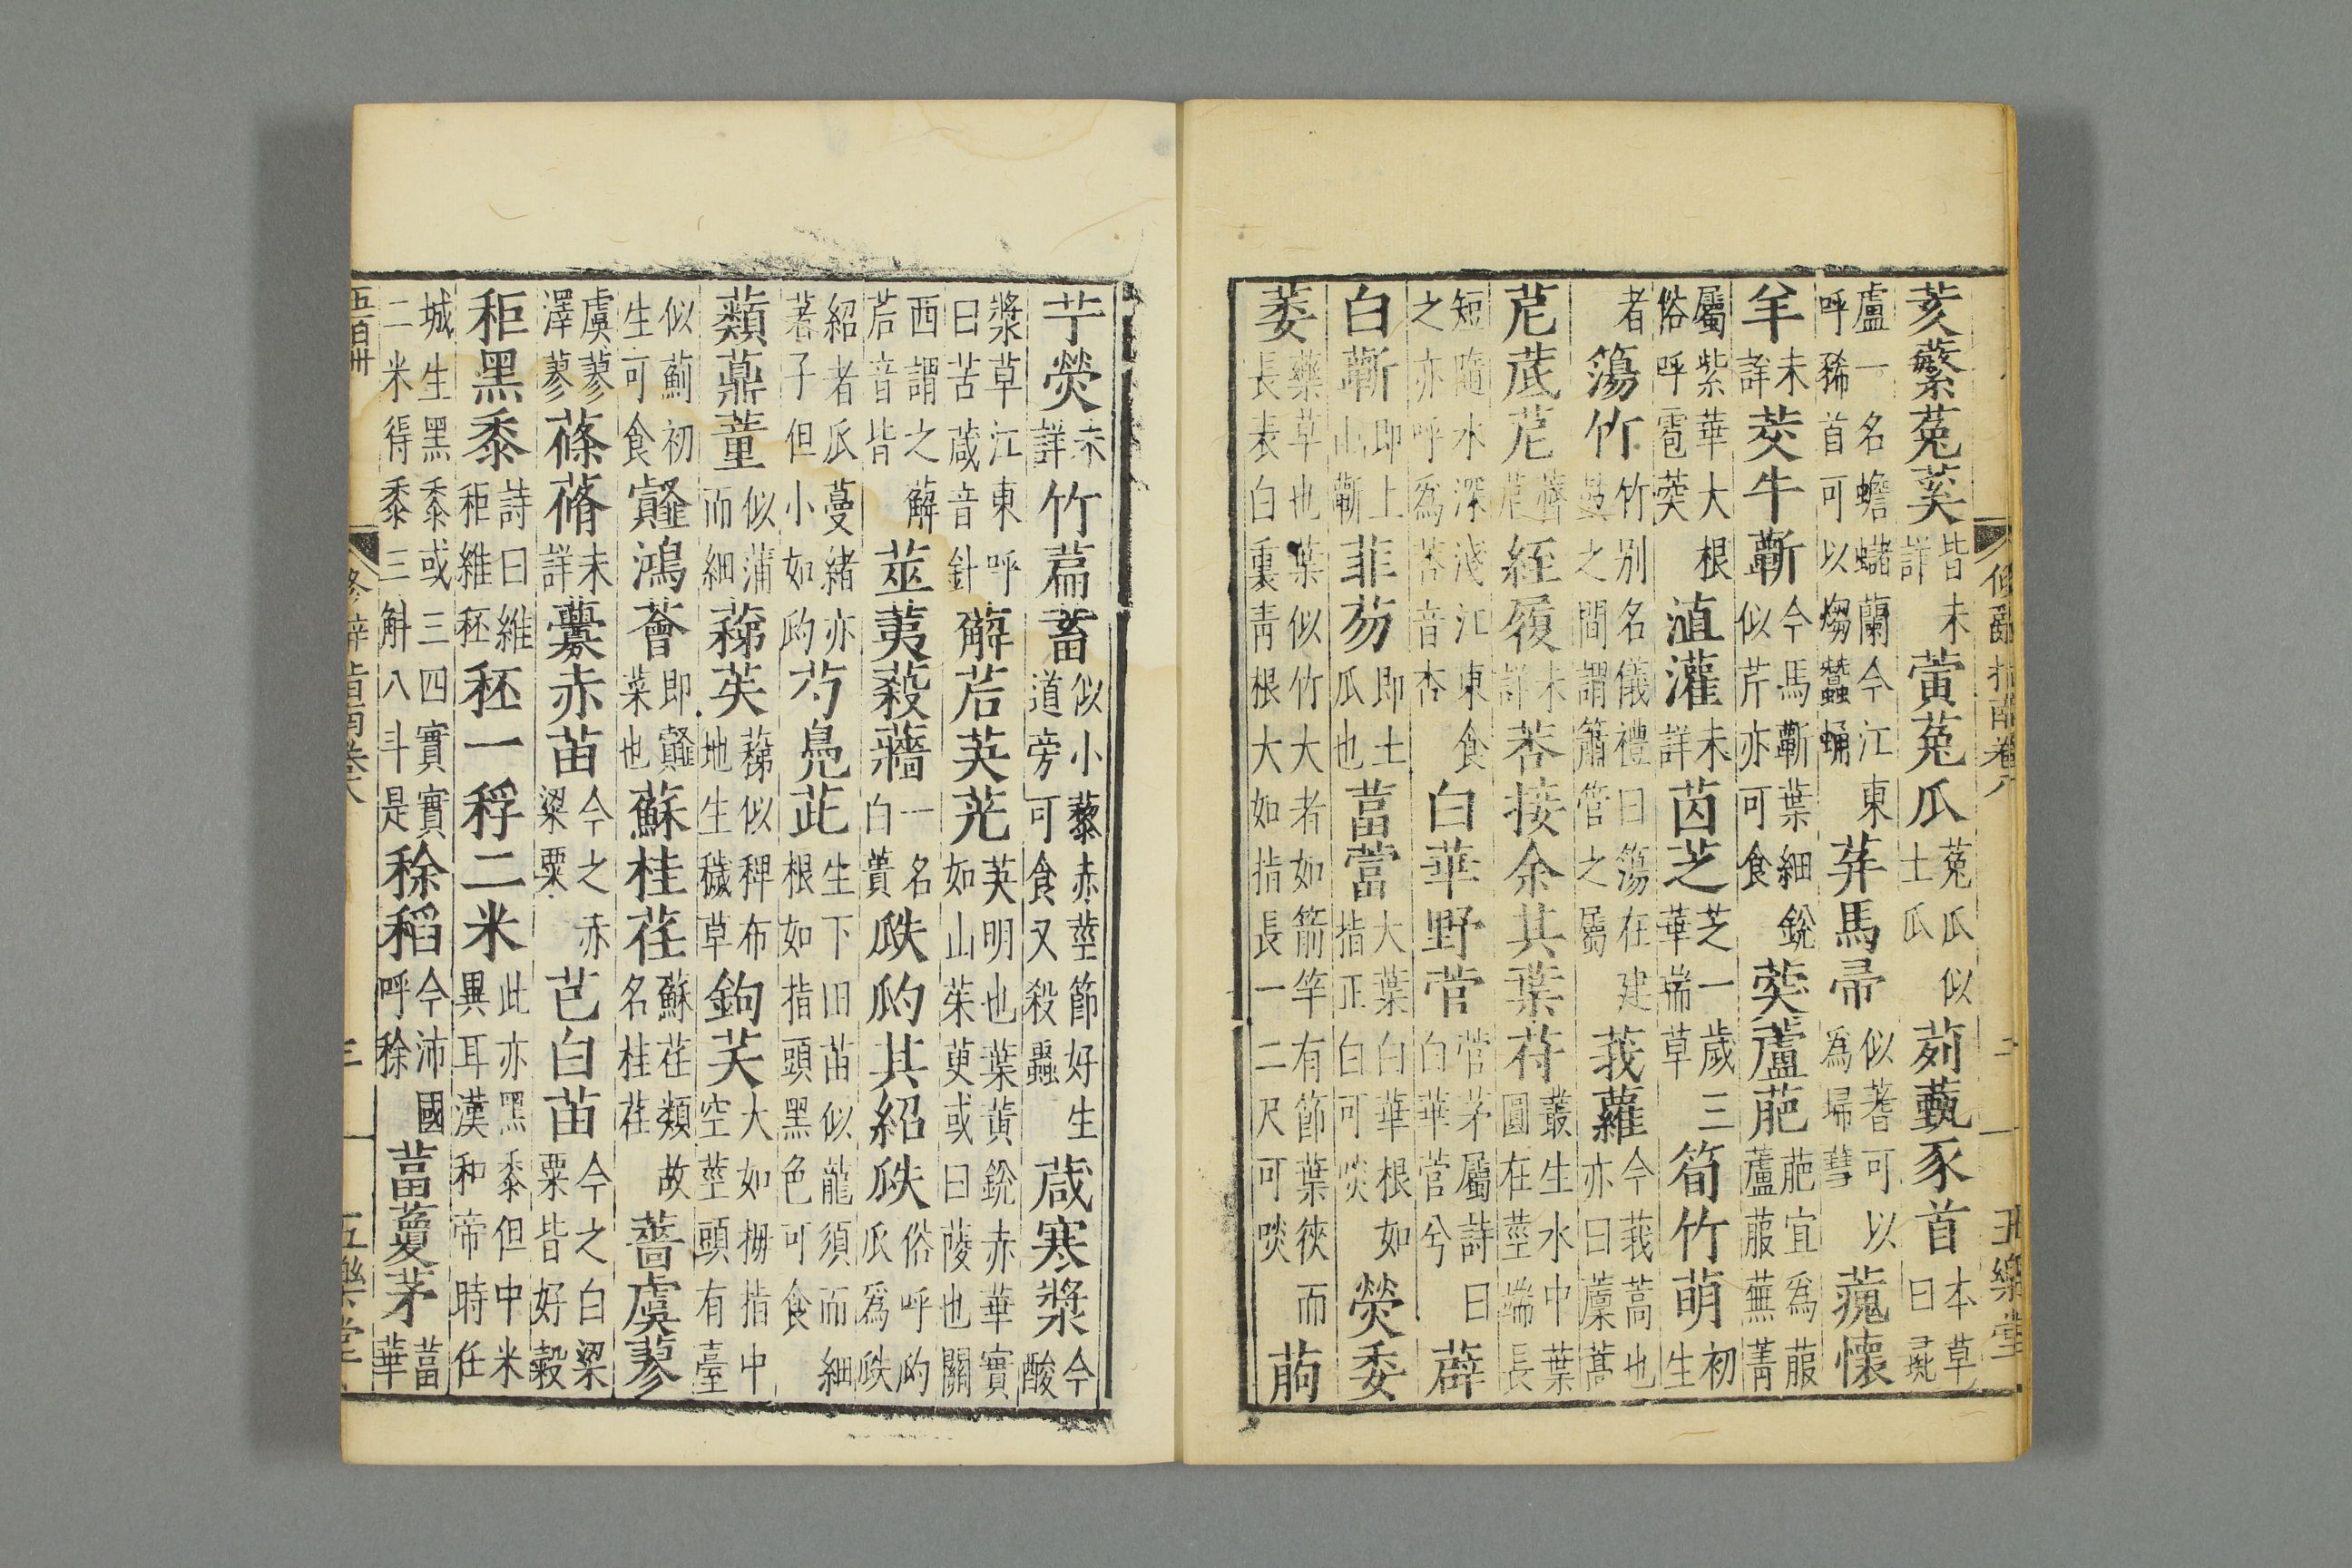 荄蘩菟蒵皆未詳黃菟瓜菟瓜似土瓜茢薽豕首本草曰彘
盧一名蟾蠩蘭今江東呼豨首可以㷅蠶蛹荓馬帚似蓍可以爲埽彗藱懷
羊未詳茭牛蘄今馬蘄葉細銳似芹亦可食葖蘆萉萉宜爲菔蘆菔蕪菁
屬紫華大根俗呼雹葖淔灌未詳茵芝芝一歲三華瑞草筍竹萌初生
者簜竹竹别名儀禮曰簜在建鼓之間謂簫管之屬莪蘿今莪蒿也亦曰䕲蒿
苨菧苨薺苨絰履未詳莕接余其葉苻叢生水中葉圓在莖端長
短隨水深淺江東食之亦呼爲莕音杏白華野菅菅茅屬詩曰白華菅兮薜
白蘄即上山蘄菲芴即土瓜也葍䔰大葉白華根如指正白可啖熒委
萎藥草也葉似竹大者如箭竿有節葉狹而長表白裏青根大如指長一二尺可啖葋
修辭指南卷八 五樂堂
艼熒未詳竹萹蓄似小藜赤莖節好生道旁可食又殺蟲葴寒漿今酸
漿草江東呼曰苦葴音針薢茩芵茪芵明也葉黃銳赤華實如山茱萸或曰䔖也關
西謂之薢茩音皆莁荑蔱蘠一名白蕢瓞瓝其紹瓞俗呼瓝瓜爲瓞
紹者瓜蔓緒亦著子但小如瓝芍鳧茈生下田苗似龍須而細根如指頭黑色可食
蘱薡蕫似蒲而細蕛苵蕛似稗布地生穢草鉤芺大如拇指中空莖頭有臺
似薊初生可食䪥鴻薈即䪥菜也蘇桂荏蘇荏類故名桂荏薔虞蓼
虞蓼澤蓼蓧蓨未詳虋赤苗今之赤粱粟芑白苗今之白粱粟皆好穀
秬黑黍詩曰維秬維秠秠一稃二米此亦黑黍但中米異耳漢和帝時任
城生黑黍或三四實實二米得黍三斛八斗是稌稻今沛國呼稌葍藑茅葍華
五百卅 修辭指南卷八 三 五樂堂